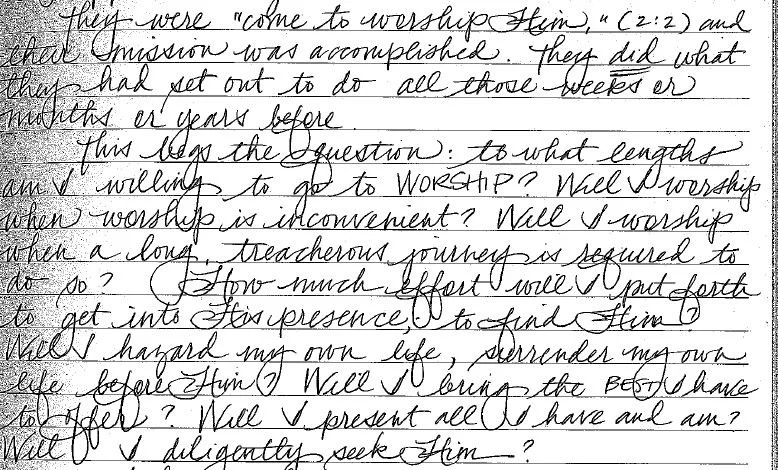 They were "come to worship Him," (2:2) and
their mission was accomplished. They did what
they had set out to do all those weeks or
months or years before.
This begs the question: to what lengths
am I willing to go to WORSHIP? Will I worship
when worship is inconvenient? Will I worship
when a long, treacherous journey is required to
do so? How much effort will I put forth
to get into His presence, to find Him?
Will I hazard my own life, surrender my own
life before Him? Will I bring the BEST I have
to offer? Will I present all I have and am?
Will I diligently seek Him?